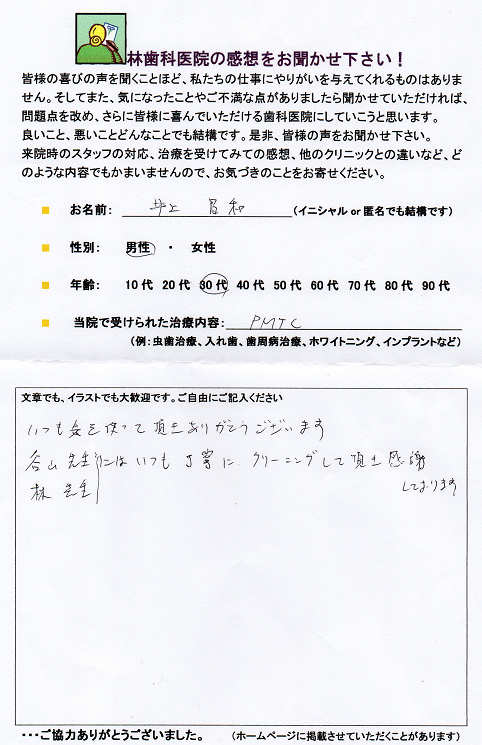 林歯科医院の感想をお聞かせ下さい！
皆様の喜びの声を聞くことほど、私たちの仕事にやりがいを与えてくれるものはありま
せん。そしてまた、気になったことやご不満な点がありましたら聞かせていただければ、
問題点を改め、さらに皆様に喜んでいただける歯科医院にしていこうと思います。
良いこと、悪いことどんなことでも結構です。是非、皆様の声をお聞かせ下さい。
来院時のスタッフの対応、治療を受けてみての感想、他のクリニックとの違いなど、ど
のような内容でもかまいませんので、お気づきのことをお寄せください。
お名前： 井上 昌和 （イニシャル or 匿名でも結構です）
性別： 男性 ・ 女性
年齢： 10代 20代 30代 40代 50代 60代 70代 80代 90代
当院で受けられた治療内容： PMTC
（例：虫歯治療、入れ歯、歯周病治療、ホワイトニング、インプラントなど）
文章でも、イラストでも大歓迎です。ご自由にご記入ください
いつも気を使って頂きありがとうございます
谷山先生 にはいつも丁寧に クリーニングして頂き感謝
林 先生
しております
・・・ご協力ありがとうございました。 （ホームページに掲載させていただくことがあります）